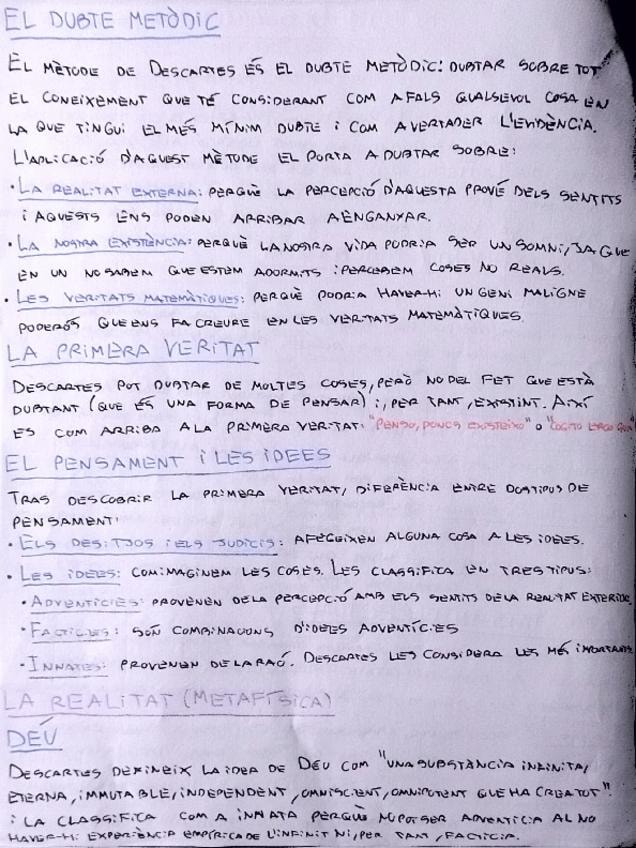 EL DUBTE METÒDIC
EL MÈTODE DE DESCARTES ÉS EL DUBTE METÒDIC: DUBTAR SOBRE TOT
EL CONEIXEMENT QUE TÉ CONSIDERANT COM A FALS QUALSEVOL COSA EN
LA QUE TINGUI EL MÉS MÍNIM DUBTE I COM A VERTADER L'EVIDÈNCIA.
L'APLICACIÓ D'AQUEST MÈTODE EL PORTA A DUBTAR SOBRE:
· LA REALITAT EXTERNA: PERQUÈ LA PERCEPCIÓ D'AQUESTA PROVÉ DELS SENTITS
I AQUESTS ENS PODEN ARRIBAR A ENGANYAR.
· LA NOSTRA EXISTÈNCIA: PERQUÈ LA NOSTRA VIDA PODRIA SER UN SOMNI, JA QUE
EN UN NO SABEM QUE ESTEM ADORMITS I PERCEBEM COSES NO REALS.
· LES VERITATS MATEMÀTIQUES: PERQUÈ PODRIA HAVER-HI UN GENI MALIGNE
PODERÓS QUE ENS FA CREURE EN LES VERITATS MATEMÀTIQUES.
LA PRIMERA VERITAT
DESCARTES POT DUBTAR DE MOLTES COSES, PERÒ NO DEL FET QUE ESTÀ
DUBTANT (QUE ÉS UNA FORMA DE PENSAR) I, PER TANT, EXISTINT. AIXÍ
ES COM ARRIBA A LA PRIMERA VERITAT: "PENSO, DONCS EXISTEIXO" O "COGITO ERGO SUM"
EL PENSAMENT I LES IDEES
TRAS DESCOBRIR LA PRIMERA VERITAT, DIFERÈNCIA ENTRE DOS TIPUS DE
PENSAMENT:
· ELS DESITJOS I ELS JUDICIS: AFEGEIXEN ALGUNA COSA A LES IDEES.
· LES IDEES: COM IMAGINEM LES COSES. LES CLASSIFICA EN TRES TIPUS:
· ADVENTÍCIES: PROVENEN DE LA PERCEPCIÓ AMB ELS SENTITS DE LA REALITAT EXTERIOR.
· FACTÍCIES: SÓN COMBINACIONS D'IDEES ADVENTÍCIES
· INNATES: PROVENEN DE LA RAÓ. DESCARTES LES CONSIDERA LES MÉS IMPORTANTS
LA REALITAT (METAFÍSICA)
DÉU
DESCARTES DEFINEIX LA IDEA DE DÉU COM "UNA SUBSTÀNCIA INFINITA,
ETERNA, IMMUTABLE, INDEPENDENT, OMNISCIENT, OMNIPOTENT QUE HA CREAT TOT".
I LA CLASSIFICA COM A INNATA PERQUÈ NO POT SER ADVENTÍCIA AL NO
HAVER-HI EXPERIÈNCIA EMPÍRICA DE L'INFINIT NI, PER TANT, FACTÍCIA.